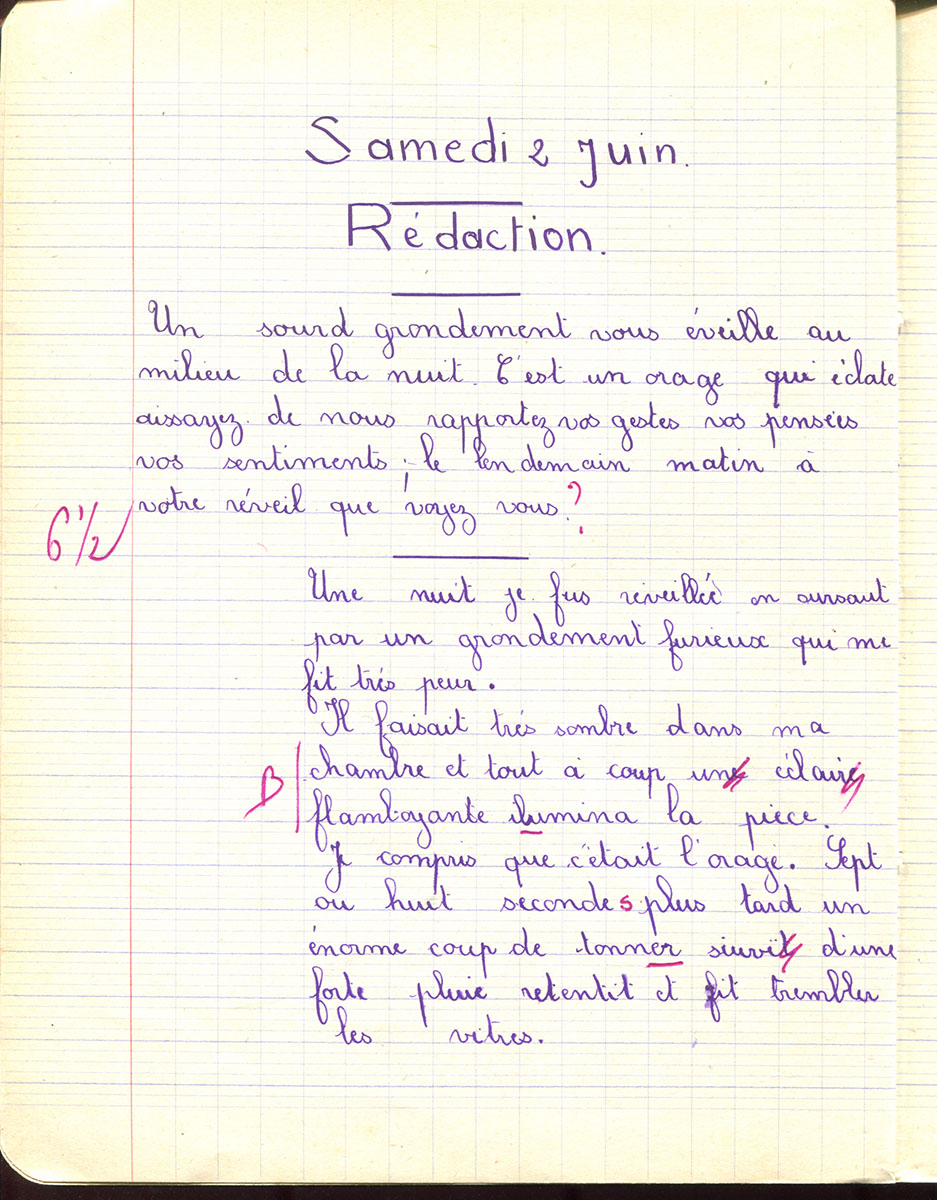 Samedi 2 Juin.
Rédaction.
Un sourd grondement vous éveille au
milieu de la nuit. C'est un orage qui éclate
aissayez de nous rapportez vos gestes vos pensées
vos sentiments ; le lendemain matin à
votre réveil que voyez vous ?
6 1/2
Une nuit je fus réveillée en sursaut
par un grondement furieux qui me
fit trés peur.
Il faisait trés sombre dans ma
B chambre et tout à coup une éclaire
flamboyante ilumina la pièce.
Je compris que c'était l'orage. Sept
ou huit secondes plus tard un
énorme coup de tonner siuvit d'une
forte pluie retentit et fit trembler
les vitres.